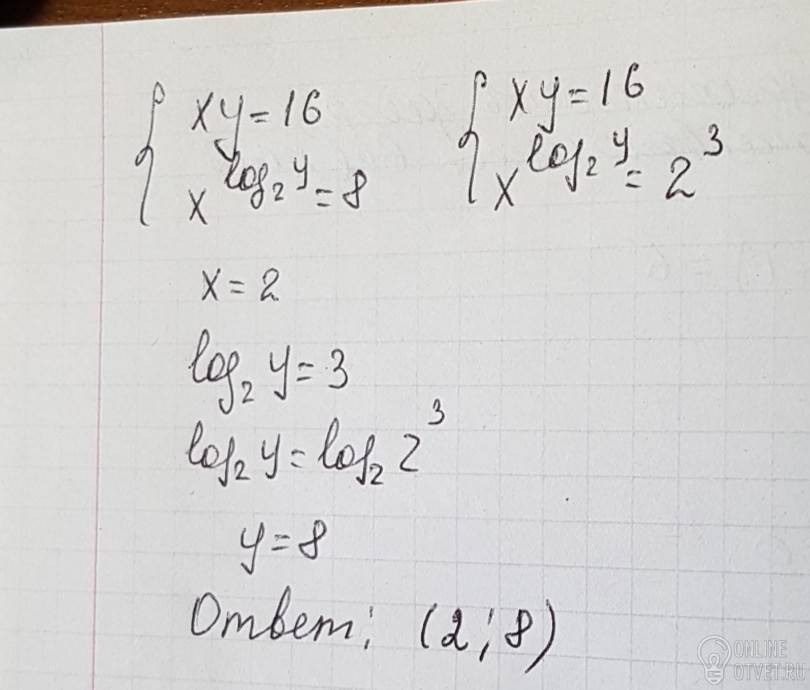 { xy = 16
x^{log₂ y} = 8
{ xy = 16
x^{log₂ y} = 2³
x = 2
log₂ y = 3
log₂ y = log₂ 2³
y = 8
Ответ: (2; 8)
ONLINE
OTVET.RU